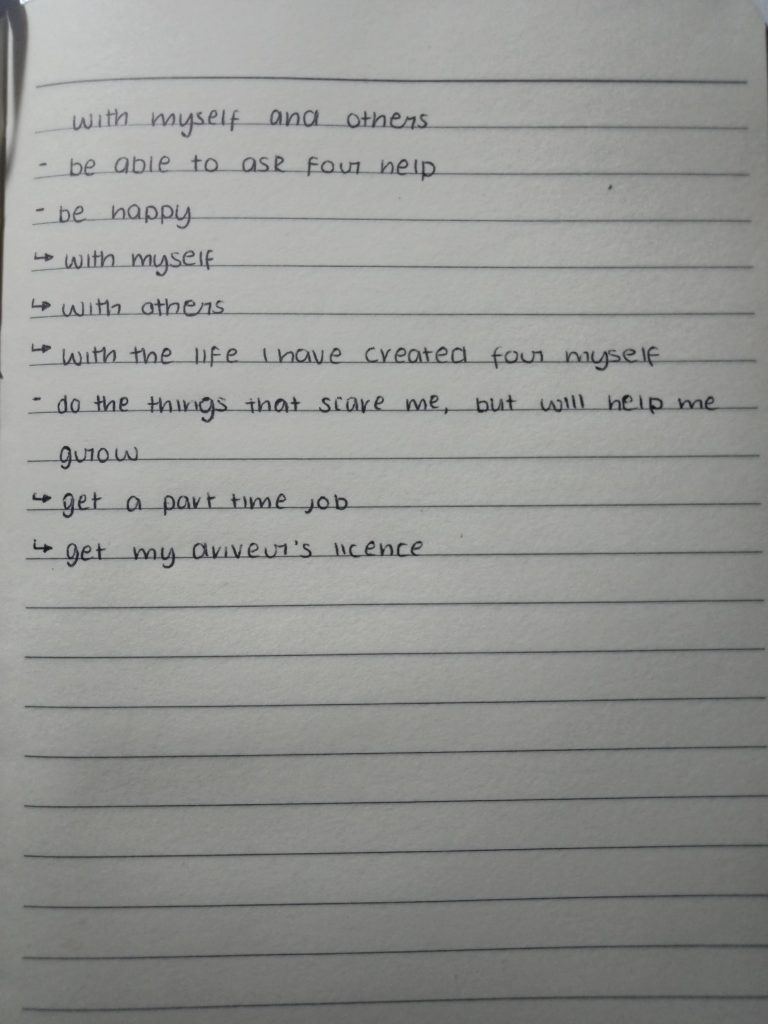 with myself and others
- be able to ask for help
- be happy
↳ with myself
↳ with others
↳ with the life I have created for myself
- do the things that scare me, but will help me
grow
↳ get a part time job
↳ get my driver's licence